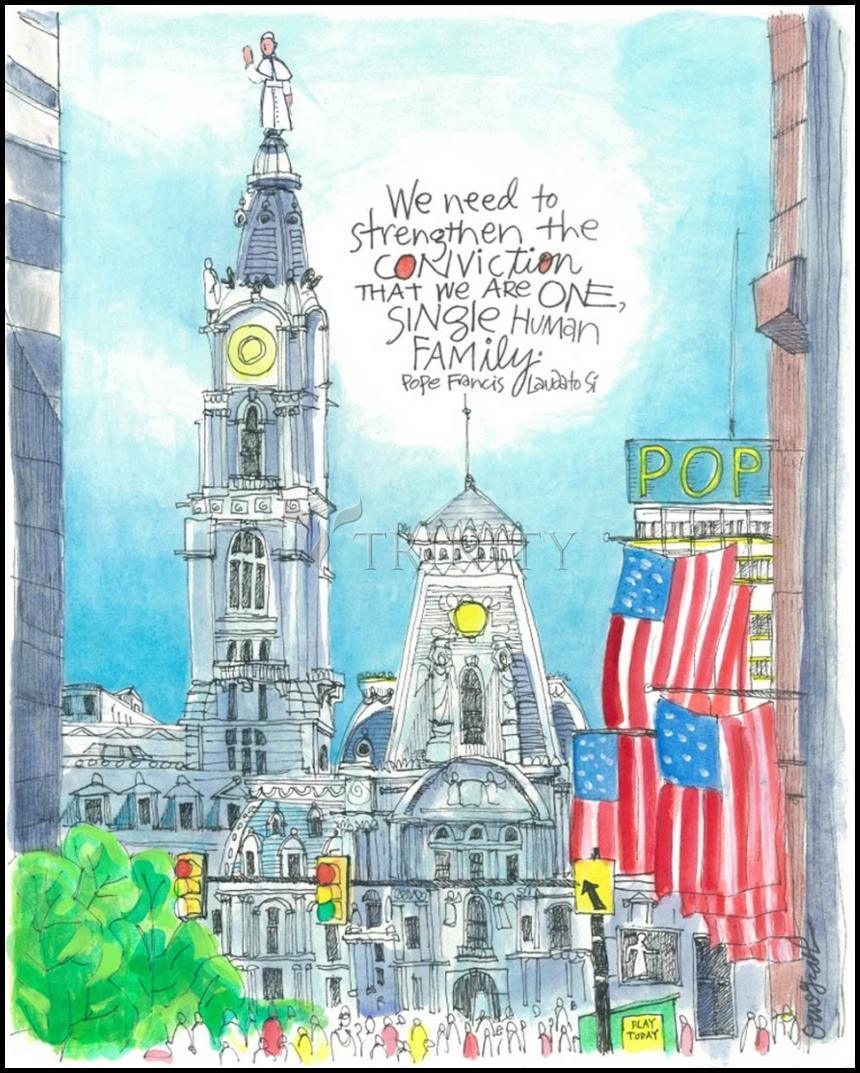 We need to
strengthen the
CONViction
THAT WE ARE ONE,
SINgle HUMAN
FAMily.
Pope Francis Laudato Si
POP
TRINITY
PLAY
TODAY